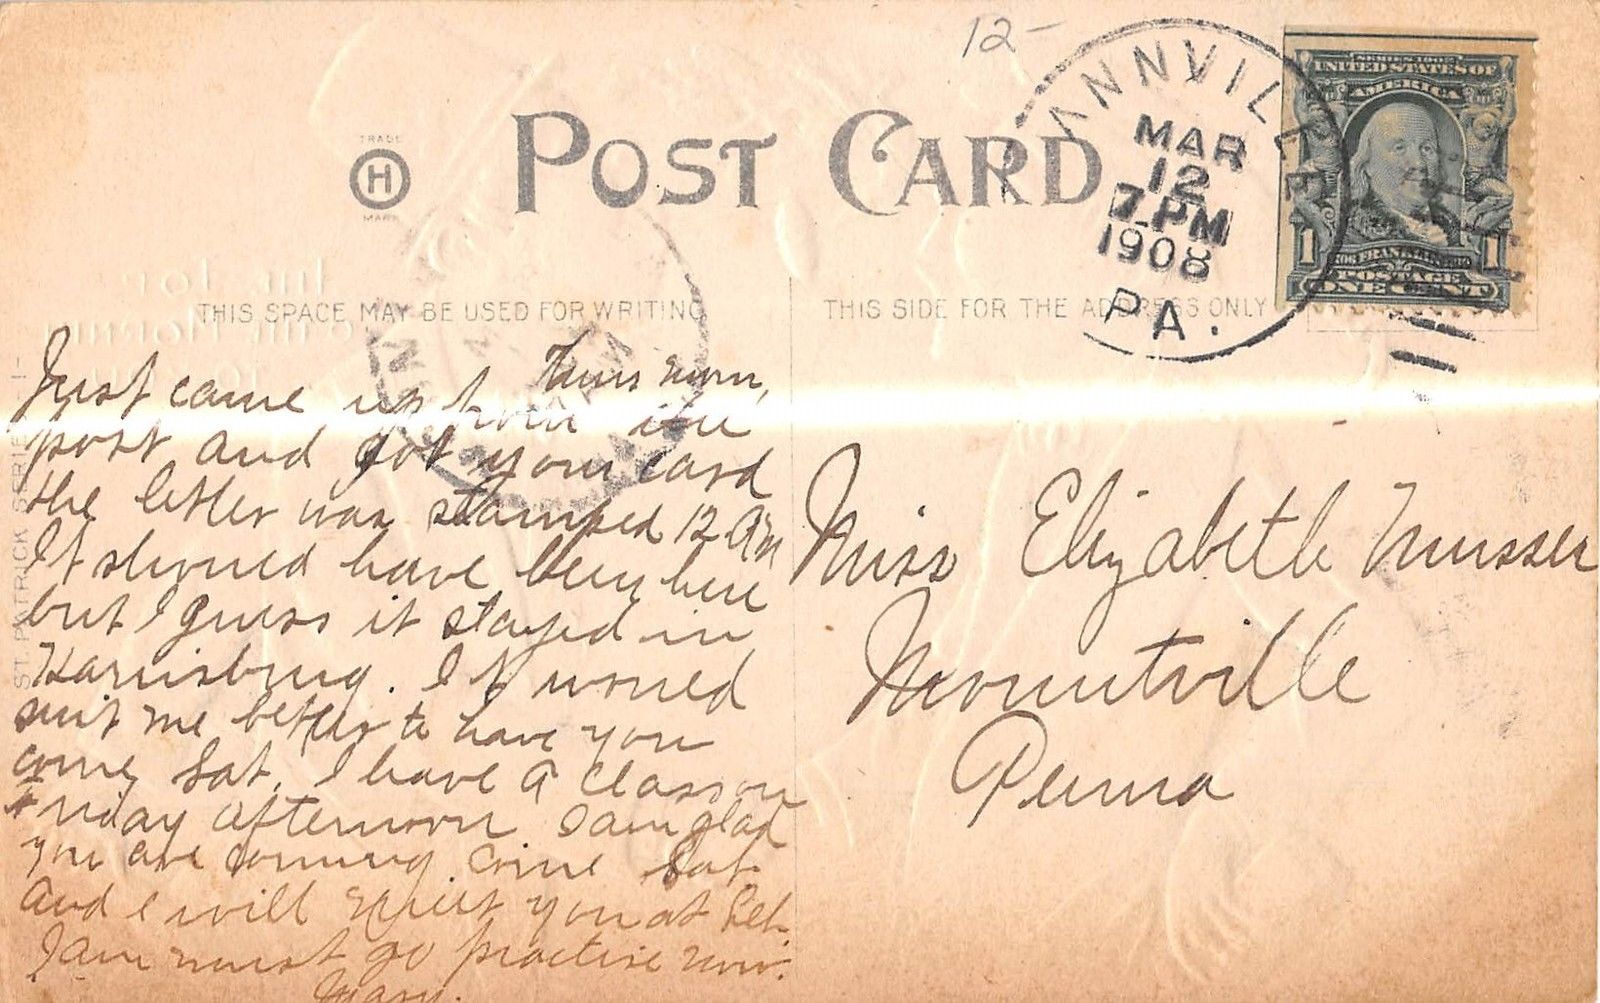 12-
TRADE
H
MARK
POST CARD
ANNVILLE
MAR
12
7-PM
1908
PA.
SERIES 1902
UNITED STATES OF
AMERICA
1 1
POSTAGE
ONE CENT
THIS SPACE MAY BE USED FOR WRITING
THIS SIDE FOR THE ADDRESS ONLY
ST. PATRICK SERIE
Thurs morn,
Just came up from the
post and got your card
the letter was stamped 12 am
It should have been here
but I guess it stayed in
Harrisburg. It would
suit me better to have you
come Sat. I have a class on
Friday afternoon I am glad
you are coming. Come Sat.
and I will meet you at Leb.
I am must go practise now.
Mary.
Miss Elizabeth Musser
Mountville
Penna